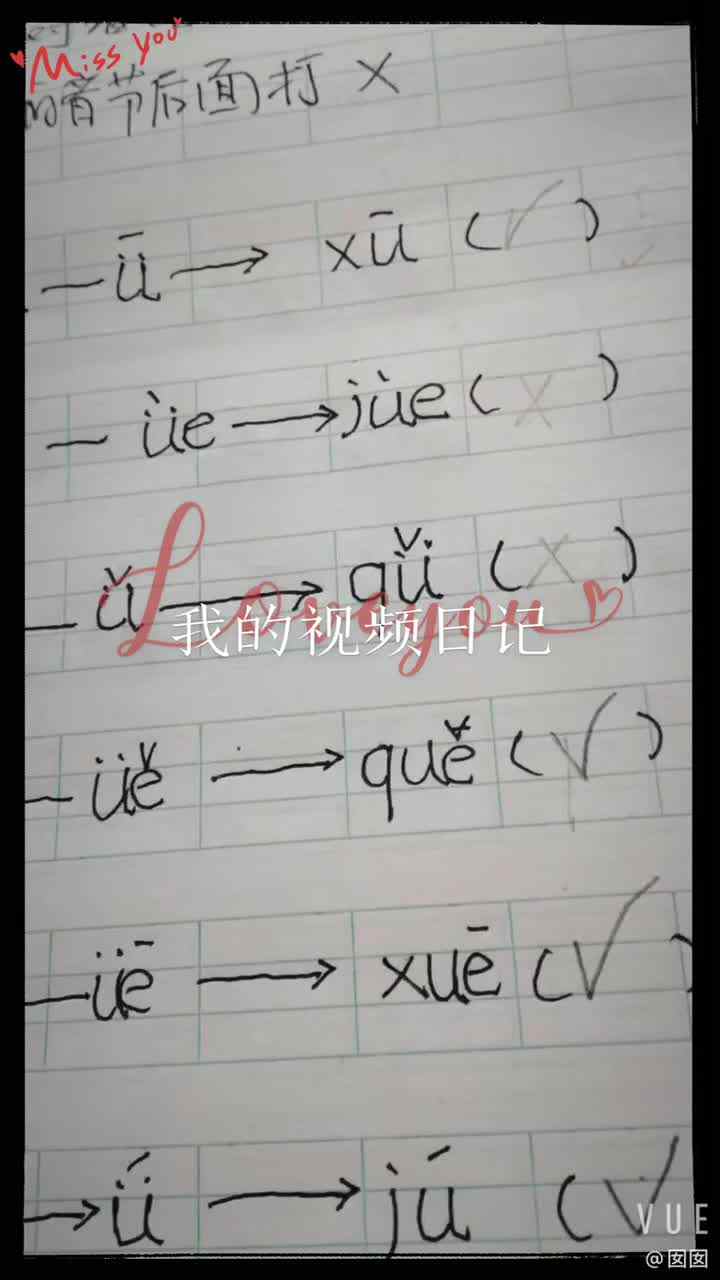 Miss you
的音节后面打 ×
— ǖ → xū ( √ )
— ùe → jùe ( × )
— ǚ → qǚ ( × )
Love you
我的视频日记
— üě → quě ( √ )
— üē → xuē ( √ )
→ ǘ → jú ( √
VUE
@囡囡